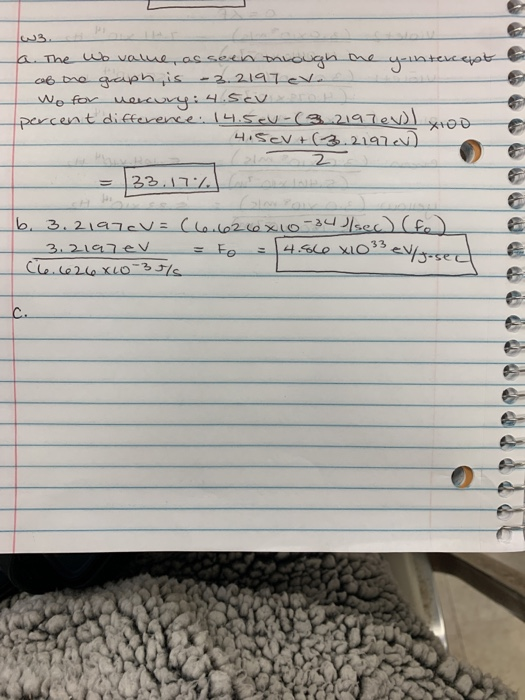 W3.
a. The Wo value, as seen through the y-intercept
of the graph, is -3.2197 eV.
Wo for mercury: 4.5eV
percent difference: |4.5eV-(3.2197eV)| x100
4.5eV+(-3.2197eV)
2
= 33.17%
b. 3.2197eV = (6.626x10-34J/sec)(fo)
3.2197eV = Fo = 4.866 x10 33 eV/J-sec
(6.626x10-3 J/s
c.